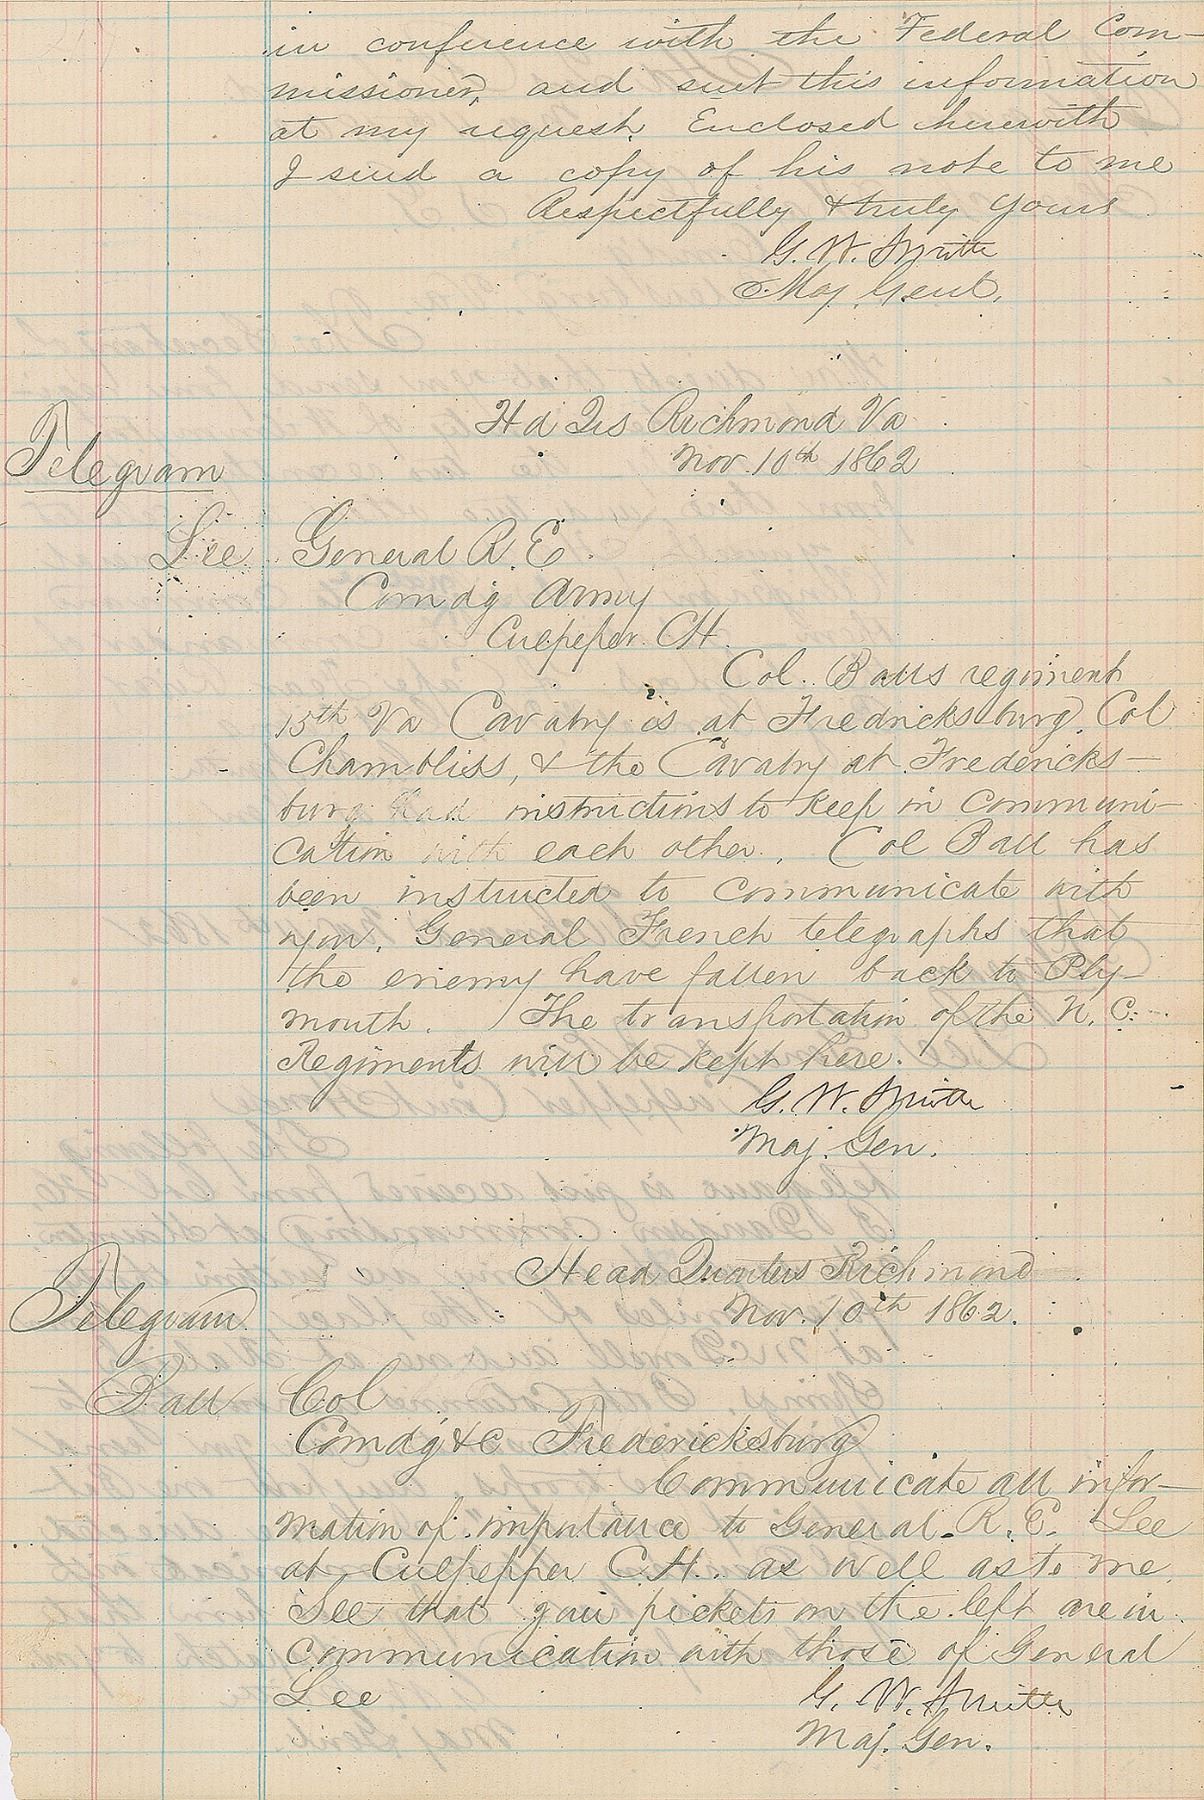 in conference with the Federal Com-
missioner, and sent this information
at my request. Enclosed herewith
I send a copy of his note to me
Respectfully & truly yours
G. W. Smith
Maj Genl.
Hd Qrs Richmond Va
Nov. 10th 1862
Telegram
Lee General R. E.
Comdg Army
Culpeper C.H.
Col. Balls regiment
15th Va Cavalry is at Fredricksburg. Col
Chambliss, & the Cavalry at Fredericks-
burg had instructions to keep in communi-
cation with each other. Col Ball has
been instructed to communicate with
you. General French telegraphs that
the enemy have fallen back to Ply-
mouth. The transportation of the N. C.
Regiments will be kept here.
G. W. Smith
Maj. Gen.
Head Quarters Richmond
Nov. 10th 1862.
Telegram
Ball Col
Comdg &c Fredericksburg
Communicate all infor-
mation of importance to General R. E. Lee
at Culpepper C.H. as well as to me.
See that your pickets on the left are in
communication with those of General
Lee
G. W. Smith
Maj. Gen.